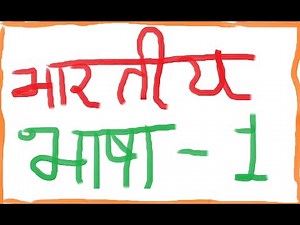 भारतीय
भाषा - 1